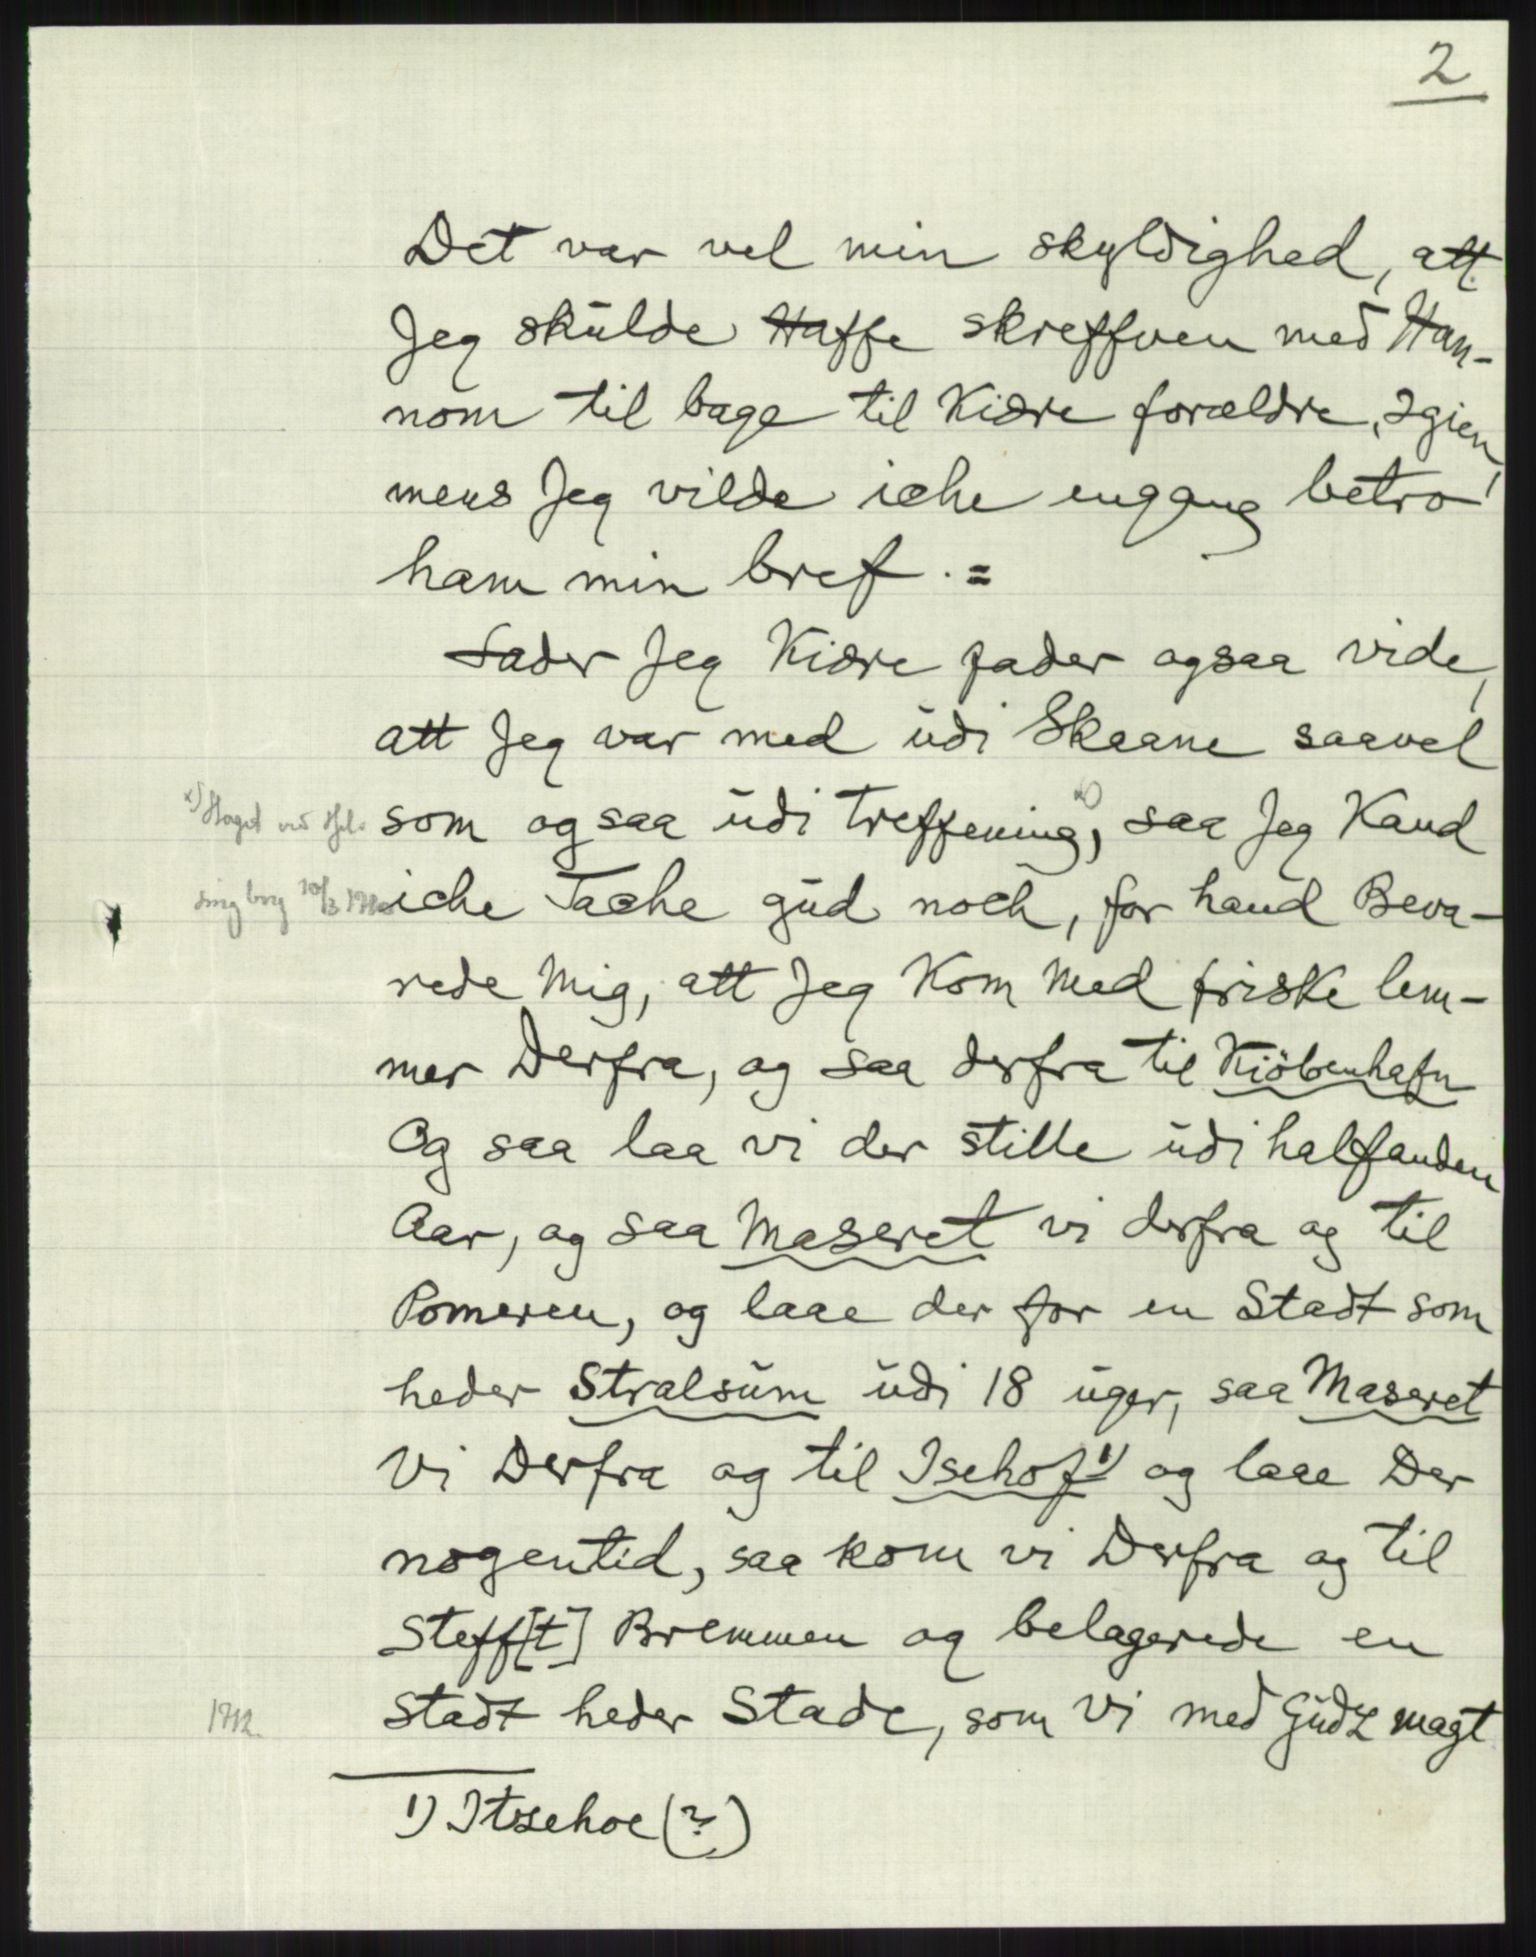 2
Det var vel min skyldighed, att
Jeg skŭlde Haffe skreffven med Han-
nom til bage til Kiære forældre, Igien,
mens Jeg vilde iche engang betro
ham min bref. =
Lader Jeg Kiære fader ogsaa vide,
att Jeg var med ŭdi Skaane saavel
som ogsaa ŭdi treffening x), saa Jeg Kand
x) Slaget ved Hel-
iche Tache gŭd noch, for hand Beva-
singborg 10/3 1710
rede Mig, att Jeg Kom Med friske lem-
mer Derfra, og saa derfra til Kiöbenhafn
Og saa laa vi der stille ŭdi halfanden
Aar, og saa Maseret vi derfra og til
Pomeren, og laae der for en Stadt som
heder Stralsŭm ŭdi 18 ŭger, saa Maseret
Vi Derfra og til Isehof 1) og laae Der
nogentid, saa kom vi Derfra og til
Steff[t] Bremmen og belagerede en
1712.
Stadt heder Stade, som Vi med Gŭdz magt
1) Itzehoe (?)